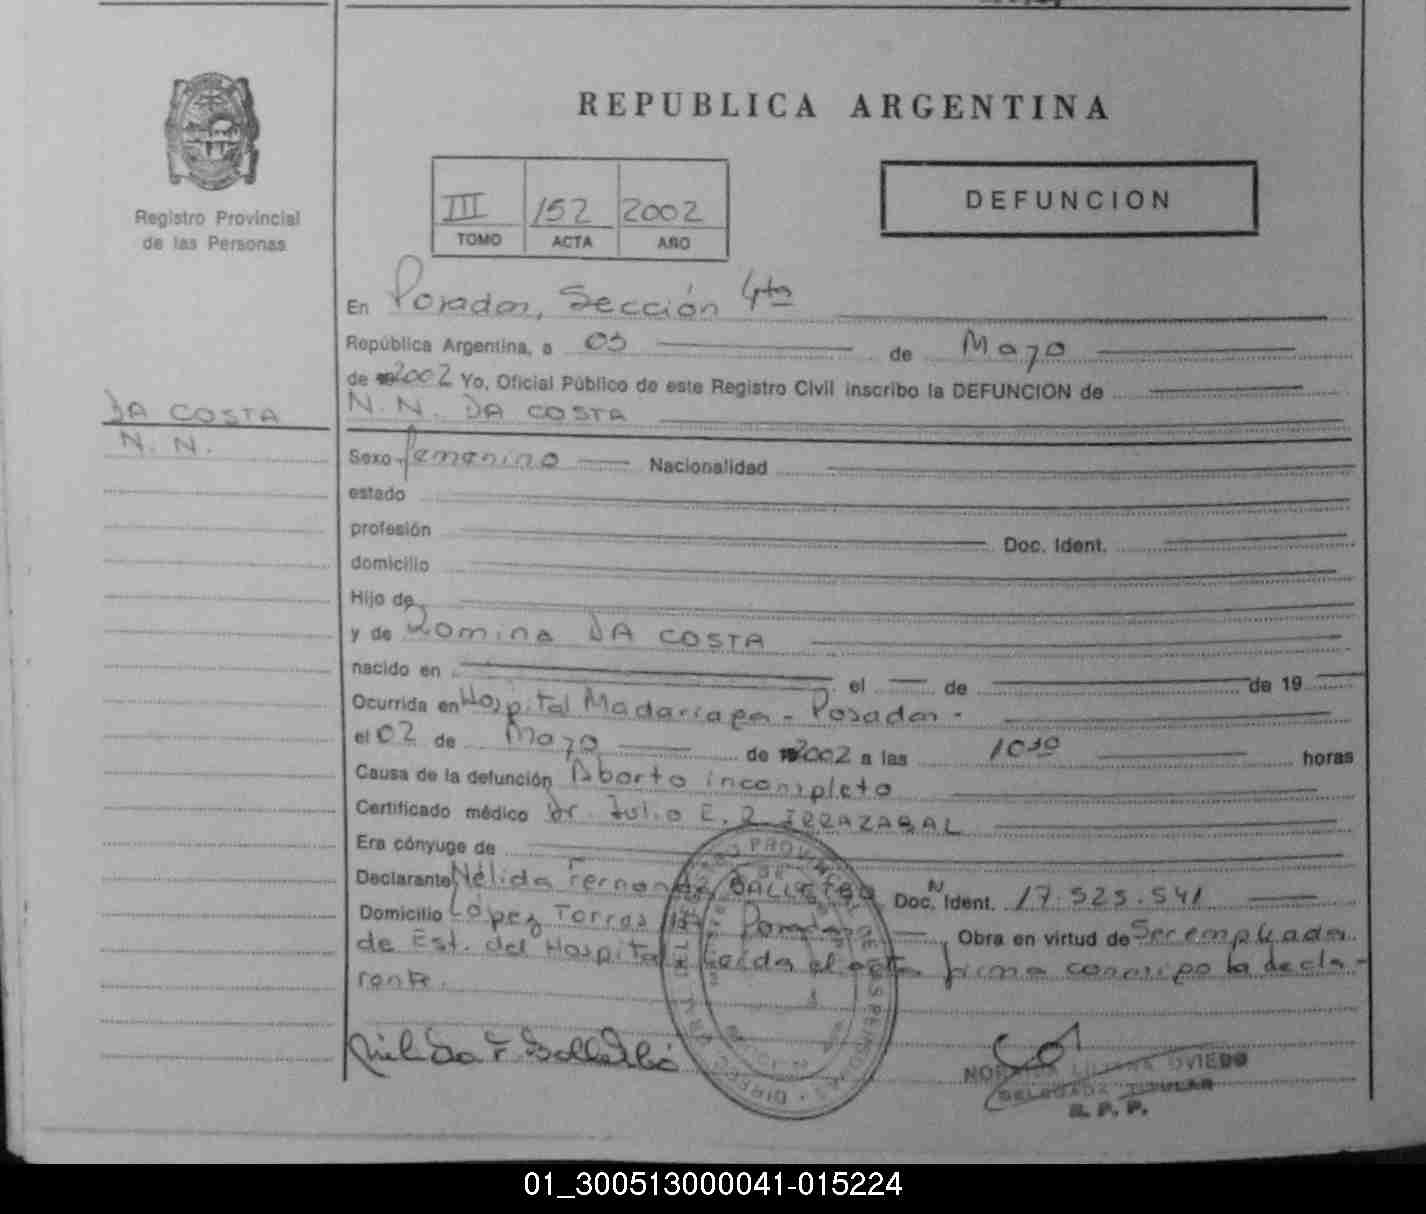 REPUBLICA ARGENTINA
Registro Provincial
de las Personas
III 152 2002
TOMO ACTA AÑO
DEFUNCION
En Posadas, Sección 4ta
República Argentina, a 03 de Mayo
de 2002 Yo, Oficial Público de este Registro Civil inscribo la DEFUNCION de
N.N. DA COSTA
DA COSTA
N. N.
Sexo femenino Nacionalidad
estado
profesión Doc. Ident.
domicilio
Hijo de
y de Romina DA COSTA
nacido en el de de 19
Ocurrida en Hospital Madariaga - Posadas -
el 02 de Mayo de 2002 a las 10 horas
Causa de la defunción Aborto incompleto
Certificado médico Dr. Julio E. R IRRAZABAL
Era cónyuge de
Declarante Nélida Fernanda Doc. N Ident. 17.525.541
Domicilio López Torres Posadas Obra en virtud de Ser empleada
de Est. del Hospital Leída el acta firma conmigo la decla-
rante.
LILIANA OVIEDO
DELEGADA TITULAR
R. P. P.
01_300513000041-015224